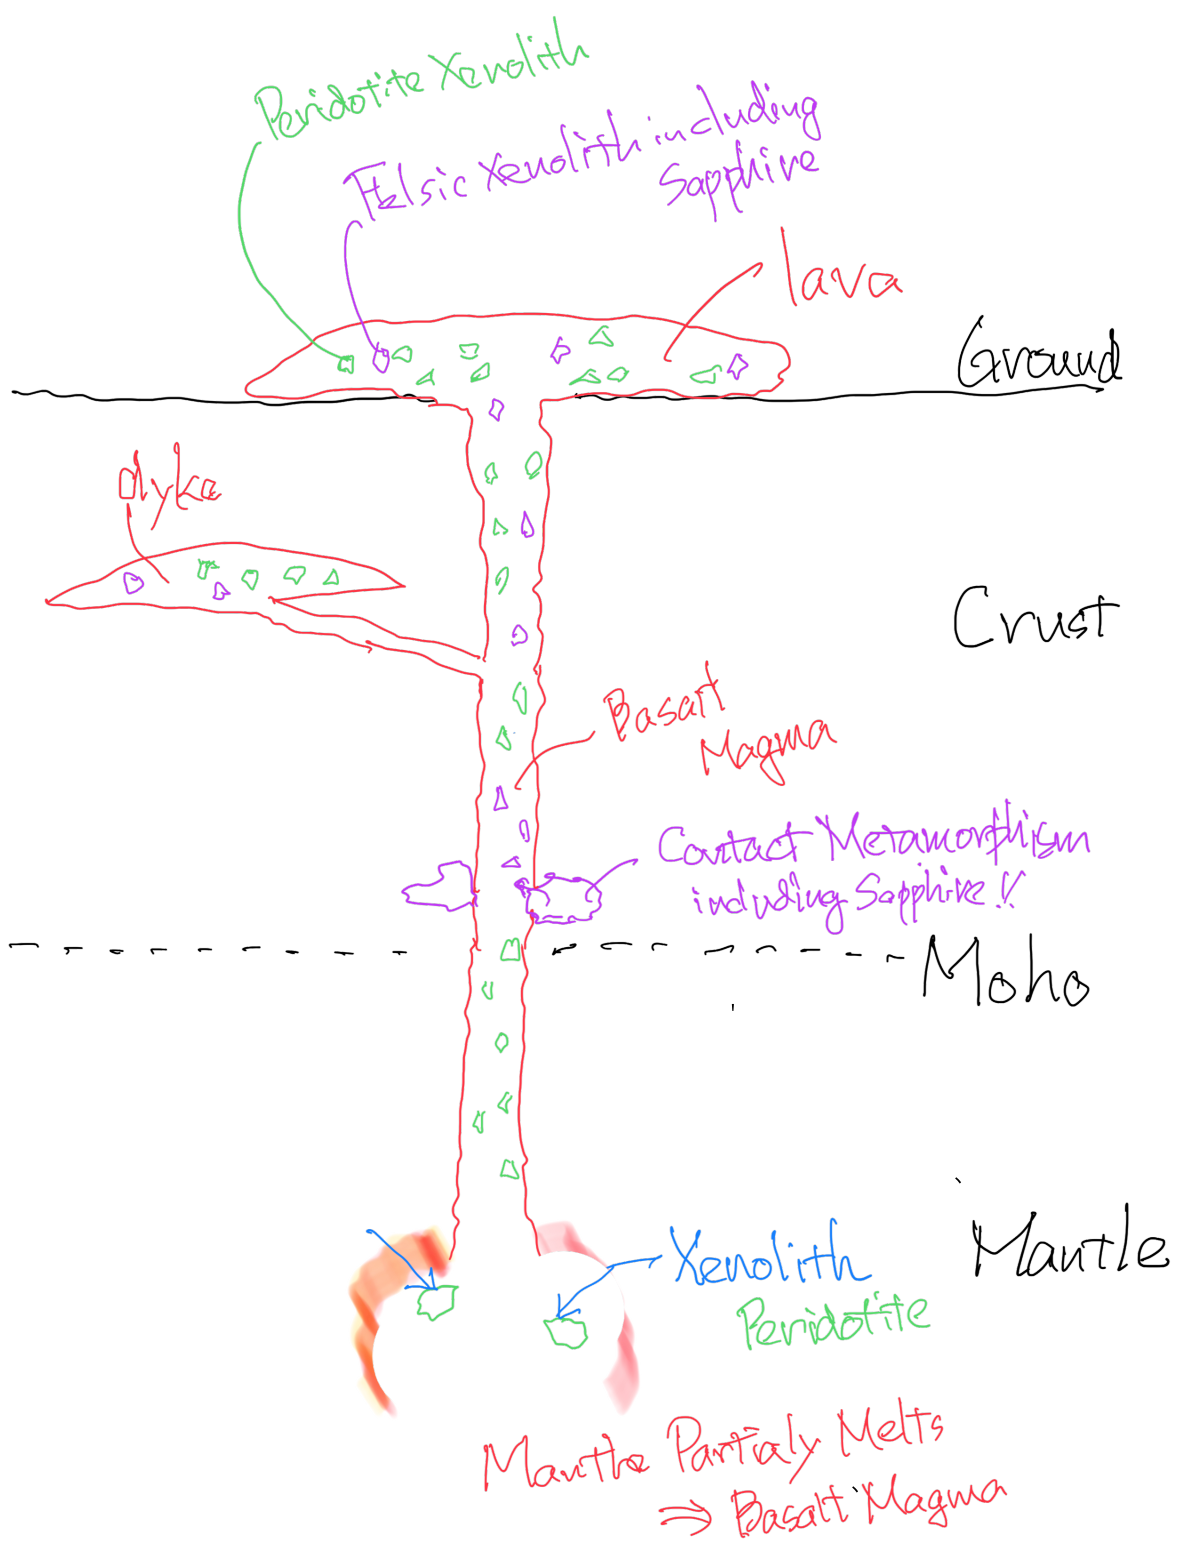 Peridotite Xenolith
Felsic Xenolith including
Sapphire
lava
Ground
dyke
Crust
Basalt
Magma
Contact Metamorphism
including Sapphire!!
Moho
Mantle
Xenolith
Peridotite
Mantle Partialy Melts
⇒ Basalt Magma